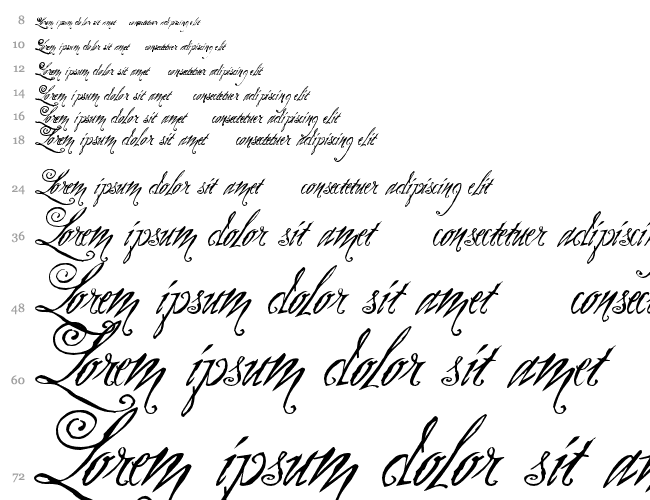 8 Lorem ipsum dolor sit amet consectetuer adipiscing elit
10 Lorem ipsum dolor sit amet consectetuer adipiscing elit
12 Lorem ipsum dolor sit amet consectetuer adipiscing elit
14 Lorem ipsum dolor sit amet consectetuer adipiscing elit
16 Lorem ipsum dolor sit amet consectetuer adipiscing elit
18 Lorem ipsum dolor sit amet consectetuer adipiscing elit
24 Lorem ipsum dolor sit amet consectetuer adipiscing elit
36 Lorem ipsum dolor sit amet consectetuer adipiscin
48 Lorem ipsum dolor sit amet consec
60 Lorem ipsum dolor sit amet
72 Lorem ipsum dolor sit am